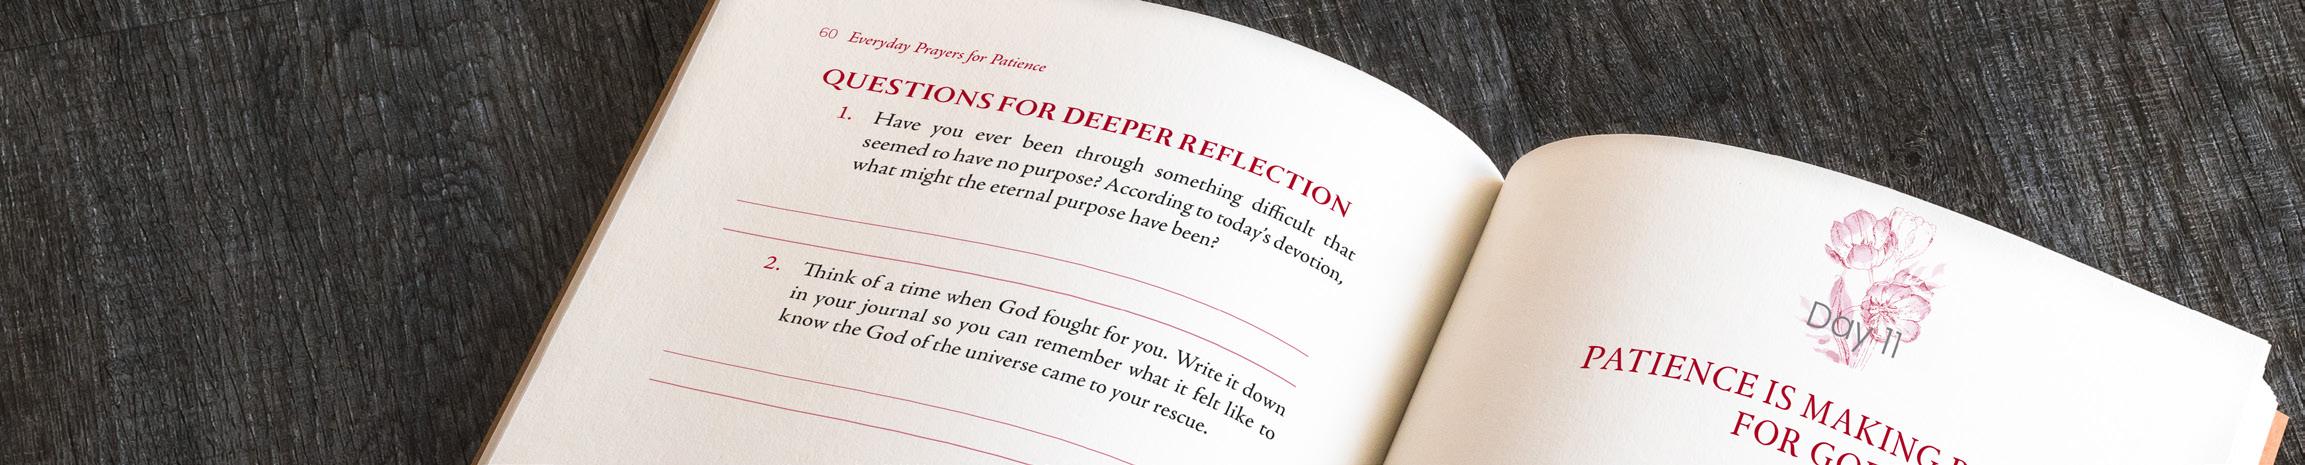 60 Everyday Prayers for Patience
QUESTIONS FOR DEEPER REFLECTION
1. Have you ever been through something difficult that
seemed to have no purpose? According to today's devotion,
what might the eternal purpose have been?
2. Think of a time when God fought for you. Write it down
in your journal so you can remember what it felt like to
know the God of the universe came to your rescue.
Day 11
PATIENCE IS MAKING
FOR